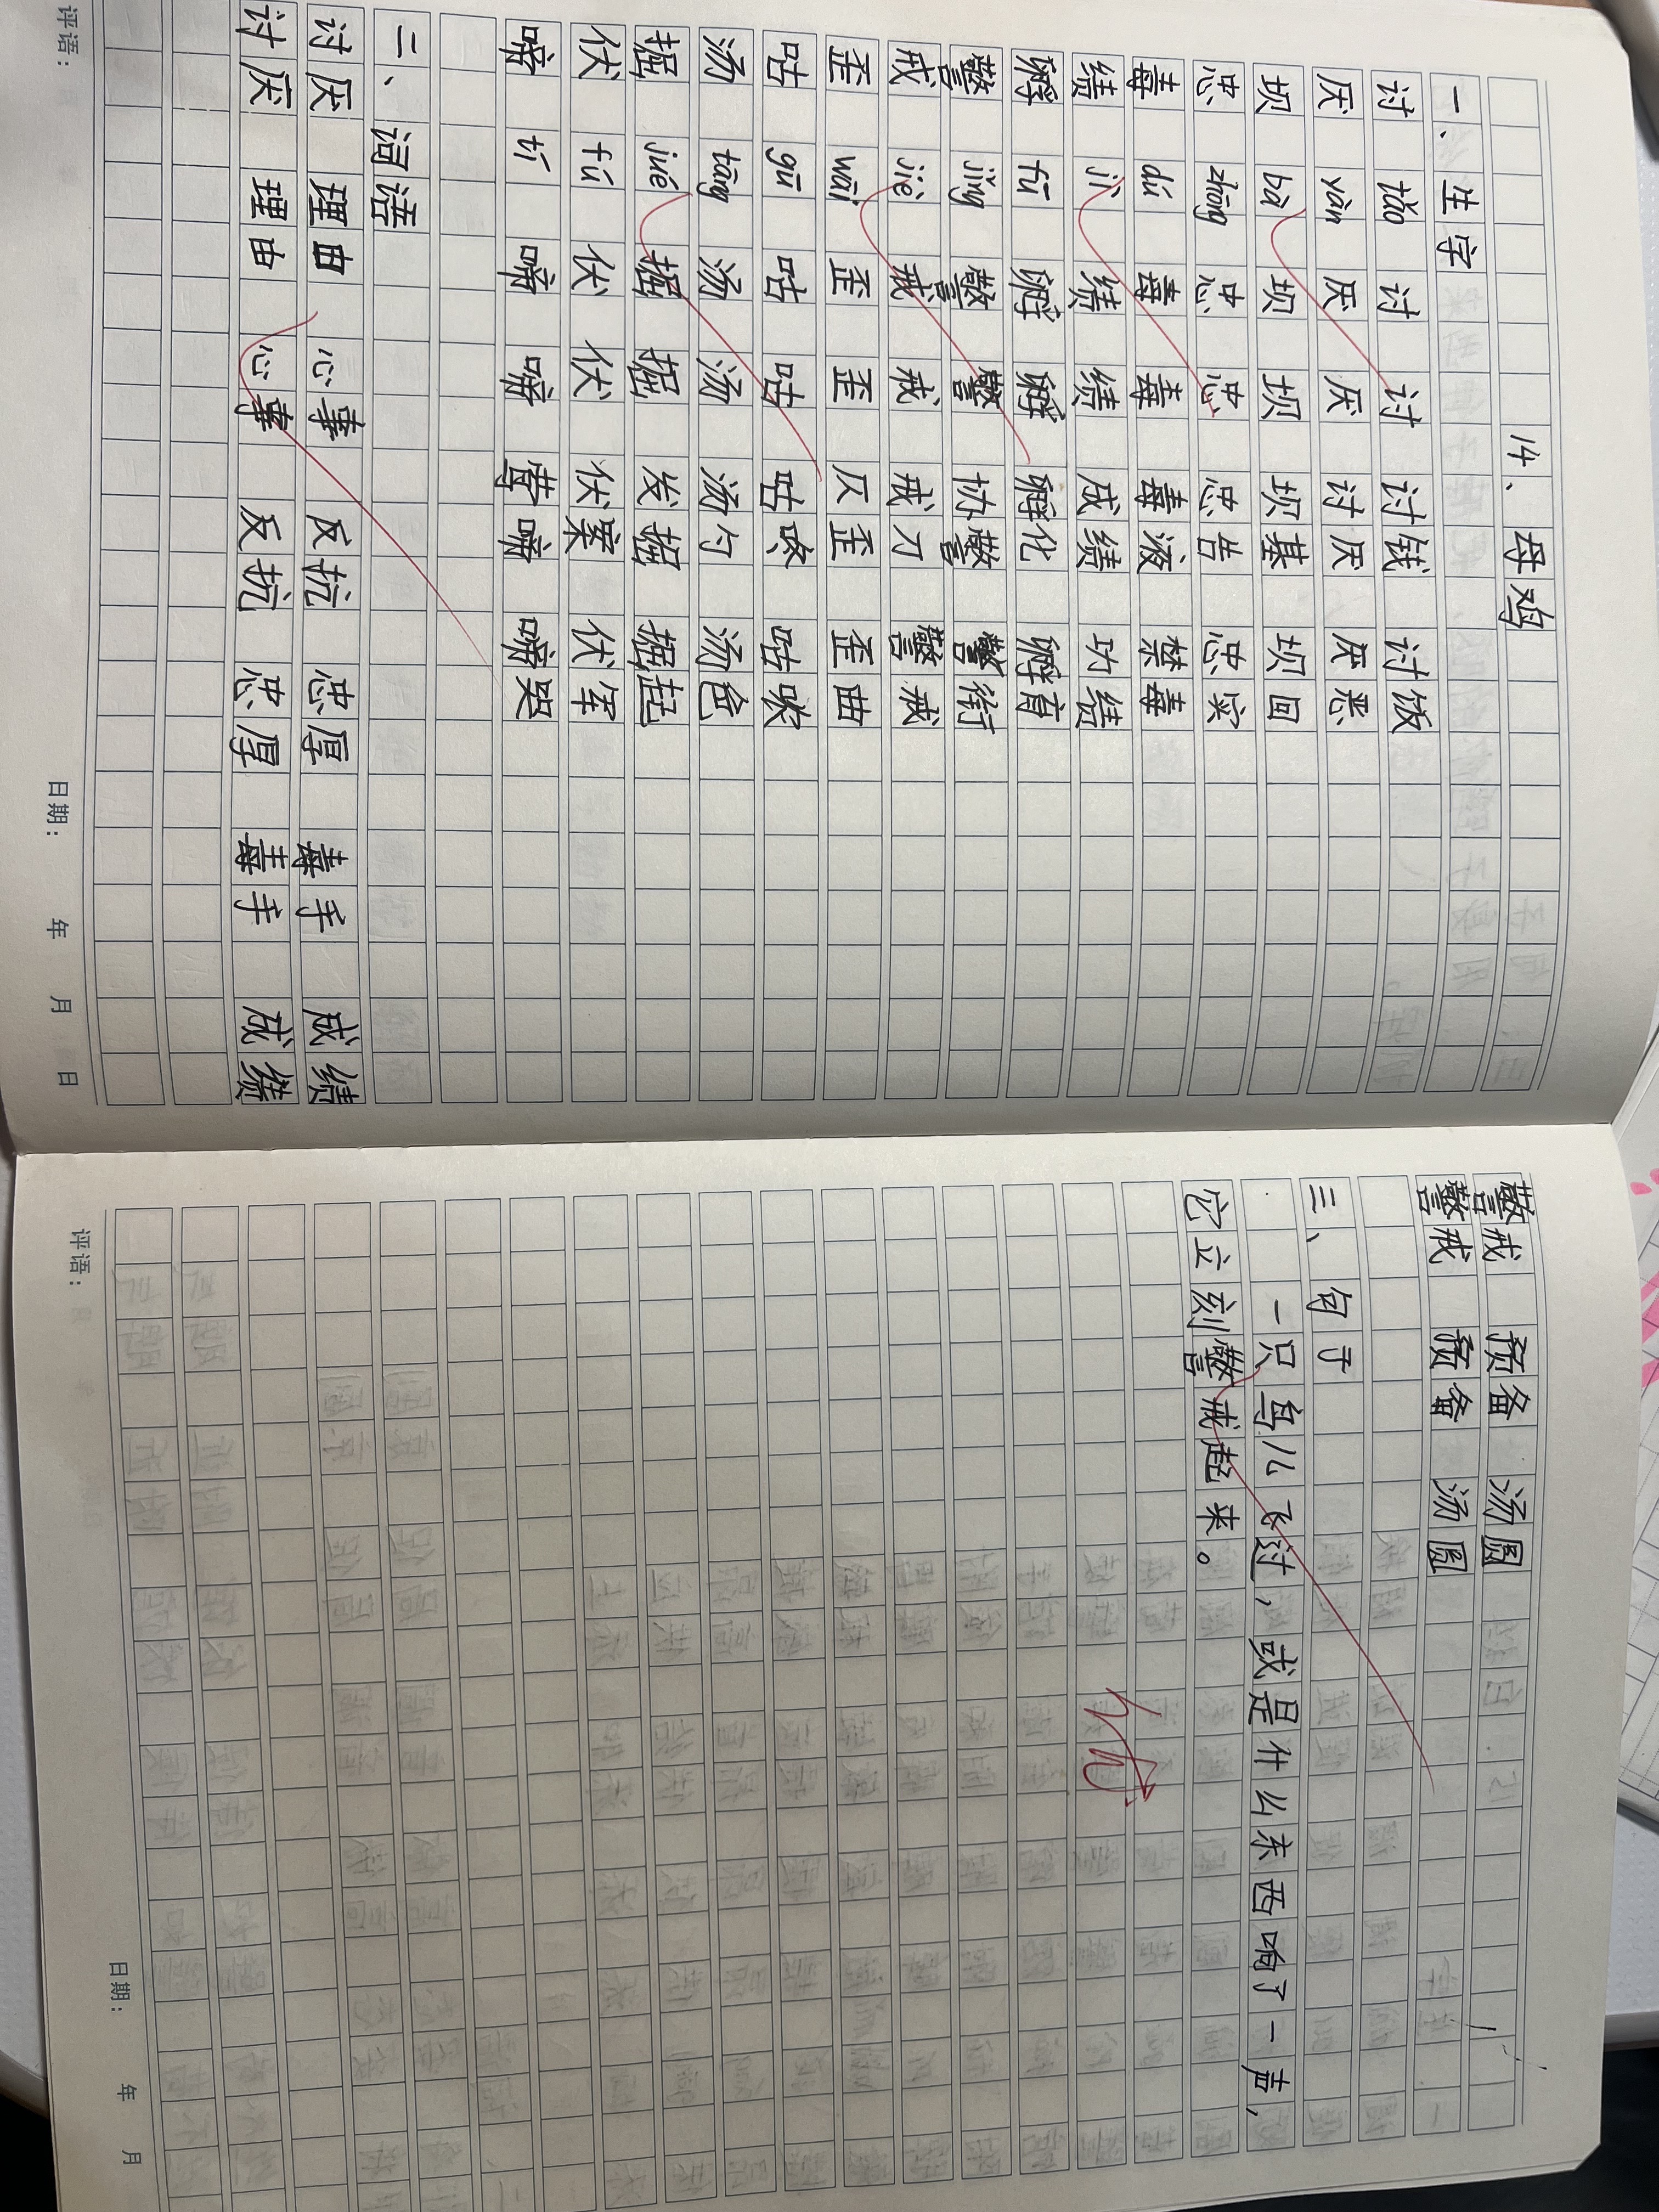 14、母鸡
一、生字
讨 tǎo 讨 讨 讨钱 讨饭
厌 yàn 厌 厌 讨厌 厌恶
坝 bà 坝 坝 坝基 坝回
忠 zhōng 忠 忠 忠告 忠实
毒 dú 毒 毒 毒液 禁毒
绩 jì 绩 绩 成绩 功绩
孵 fū 孵 孵 孵化 孵育
警 jǐng 警 警 协警 警衔
戒 jiè 戒 戒 戒刀 警戒
歪 wāi 歪 歪 仄歪 歪曲
咕 gū 咕 咕 咕咚 咕哝
汤 tāng 汤 汤 汤勺 汤包
掘 jué 掘 掘 发掘 掘起
伏 fú 伏 伏 伏案
啼 tí 啼 啼 啼哭
二、词语
讨厌 理由 心事 反抗 忠厚 毒手 成绩
讨厌 理由 心事 反抗 忠厚 毒手 成绩
评语: 日期: 年 月 日
警戒 预备 汤圆
警戒 预备 汤圆
三、句子
一只鸟儿飞过，或是什么东西响了一声，
它立刻警戒起来。
优
评语: 日期: 年 月